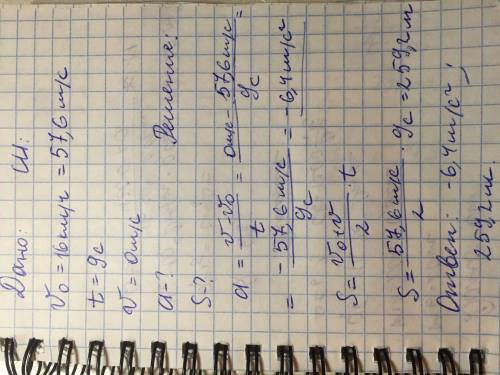 Дано: СИ:
V₀ = 16 км/ч = 57,6 м/с
t = 9с
V = 0 м/с
Решение:
a - ?
S - ?
a = (V - V₀)/t = (0 м/с - 57,6 м/с)/9с =
= - 57,6 м/с/9с = -6,4 м/с²
S = (V₀ + V)/2 · t
S = 57,6 м/с/2 · 9с = 259,2 м
Ответ: -6,4 м/с²;
259,2 м.